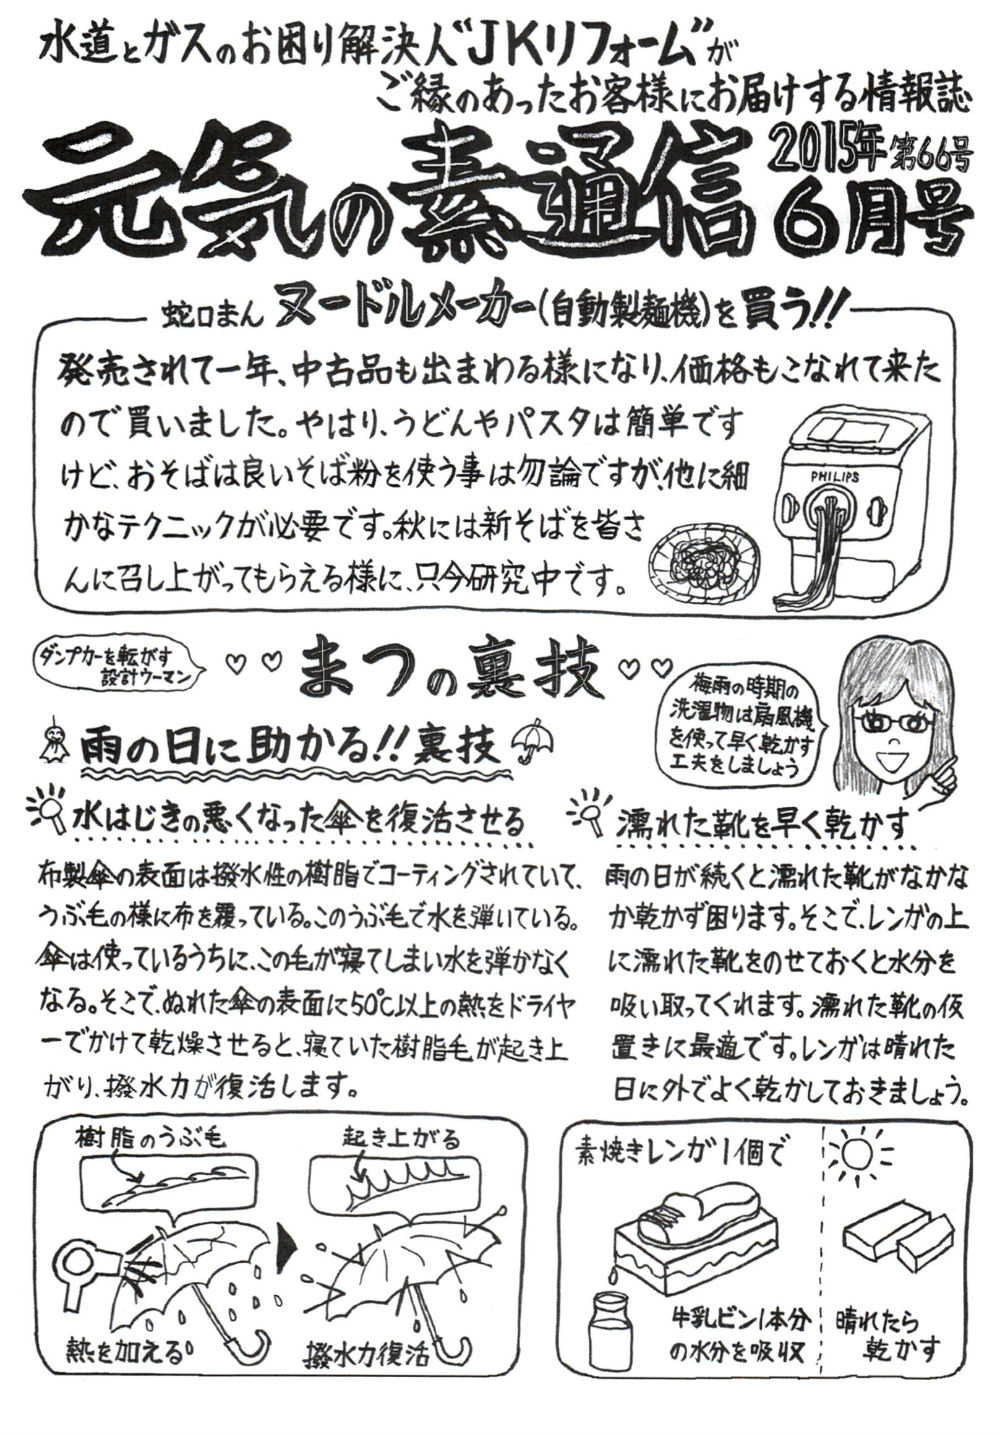 水道とガスのお困り解決人“JKリフォーム”が
ご縁のあったお客様にお届けする情報誌
元気の素通信
2015年 第66号
6月号
蛇口まん ヌードルメーカー(自動製麺機)を買う!!
発売されて一年、中古品も出まわる様になり、価格もこなれて来た
ので買いました。やはり、うどんやパスタは簡単です
けど、おそばは良いそば粉を使う事は勿論ですが、他に細
かなテクニックが必要です。秋には新そばを皆さ
んに召し上がってもらえる様に、只今研究中です。
PHILIPS
ダンプカーを転がす
設計ウーマン
♡♡ まつの裏技 ♡♡
梅雨の時期の
洗濯物は扇風機
を使って早く乾かす
工夫をしましょう
雨の日に助かる!!裏技
水はじきの悪くなった傘を復活させる
布製傘の表面は撥水性の樹脂でコーティングされていて、
うぶ毛の様に布を覆っている。このうぶ毛で水を弾いている。
傘は使っているうちに、この毛が寝てしまい水を弾かなく
なる。そこで、ぬれた傘の表面に50℃以上の熱をドライヤ
ーでかけて乾燥させると、寝ていた樹脂毛が起き上
がり、撥水力が復活します。
濡れた靴を早く乾かす
雨の日が続くと濡れた靴がなかな
か乾かず困ります。そこで、レンガの上
に濡れた靴をのせておくと水分を
吸い取ってくれます。濡れた靴の仮
置きに最適です。レンガは晴れた
日に外でよく乾かしておきましょう。
樹脂のうぶ毛
起き上がる
熱を加える
撥水力復活
素焼きレンガ1個で
牛乳ビン1本分
の水分を吸収
晴れたら
乾かす